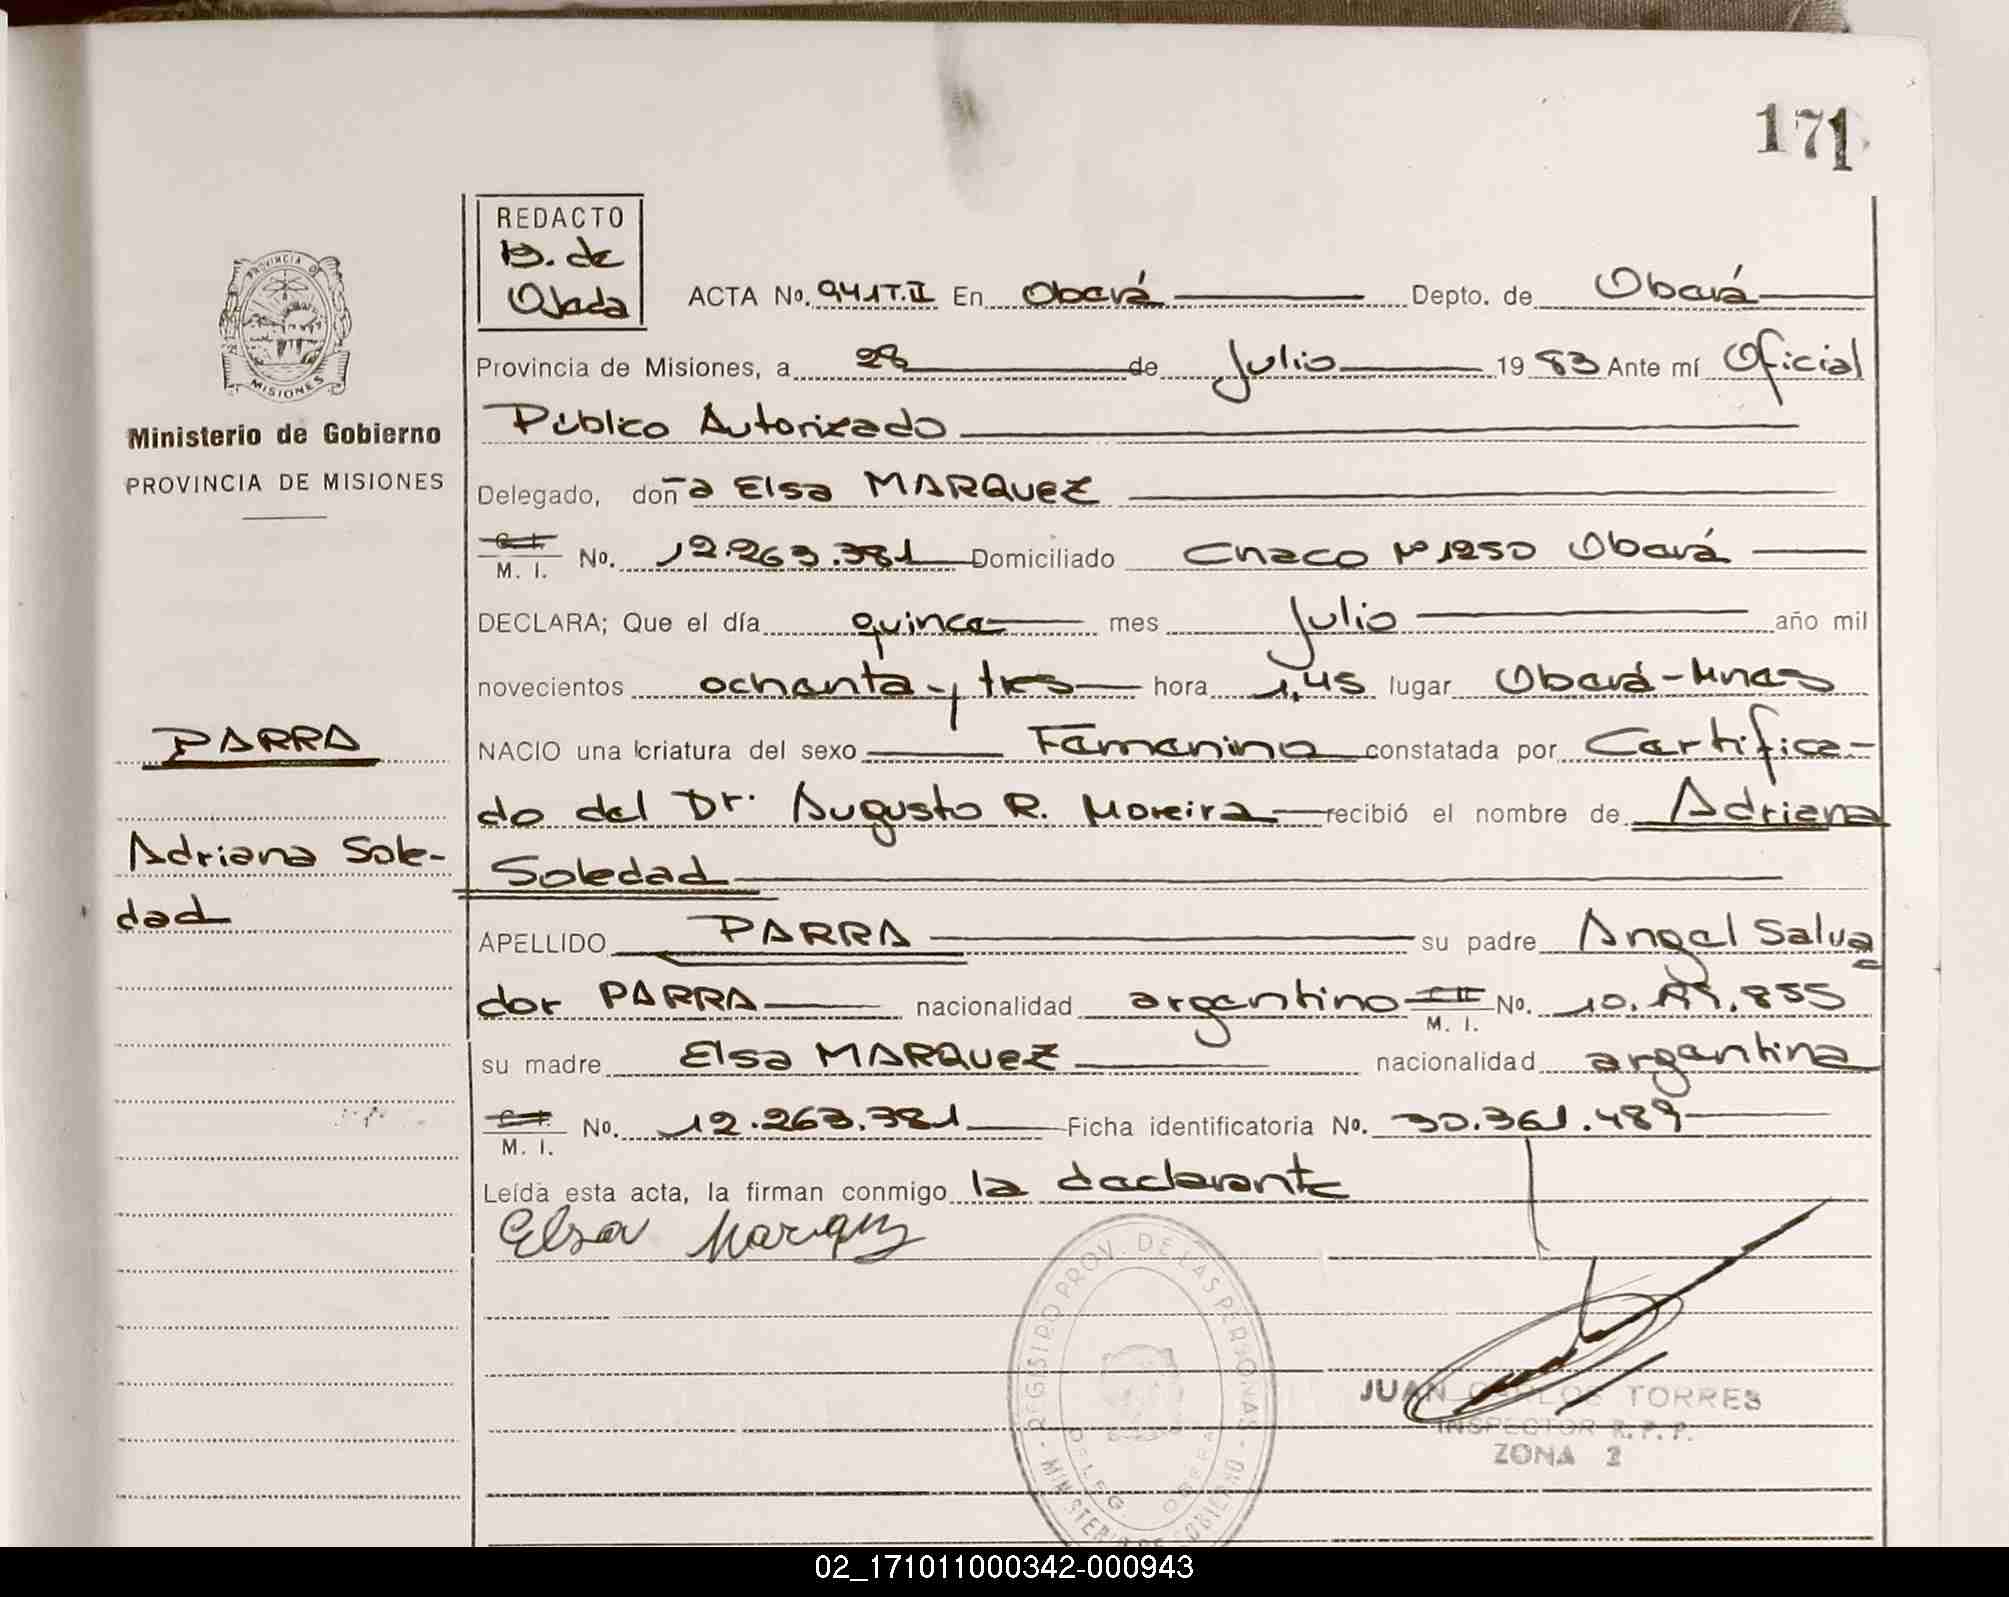 171
REDACTO
B. de
Ojeda
PROVINCIA DE
MISIONES
Ministerio de Gobierno
PROVINCIA DE MISIONES
ACTA No. 941T.II En Oberá Depto. de Oberá
Provincia de Misiones, a 28 de Julio 1983 Ante mí Oficial
Público Autorizado
Delegado, doña Elsa MARQUEZ
C. I. M. I. No. 12.263.381 Domiciliado Chaco Nº 1250 Oberá
DECLARA; Que el día quince mes Julio año mil
novecientos ochenta y tres hora 1,45 lugar Oberá-Mnes
NACIO una criatura del sexo Femenino constatada por Certifica-
do del Dr. Augusto R. Moreira recibió el nombre de Adriana
Soledad
PARRA
Adriana Sole-
dad
APELLIDO PARRA su padre Angel Salva
dor PARRA nacionalidad argentino M. I. No. 10. .855
su madre Elsa MARQUEZ nacionalidad argentina
C. I. M. I. No. 12.263.381 Ficha identificatoria No. 30.361.489
Leída esta acta, la firman conmigo la declarante
Elsa Marquez
REGISTRO PROV. DE LAS PERSONAS - MINISTERIO DE GOBIERNO -
DELEG. OBERA
JUAN CARLOS TORRES
INSPECTOR R.P.P.
ZONA 2
02_171011000342-000943